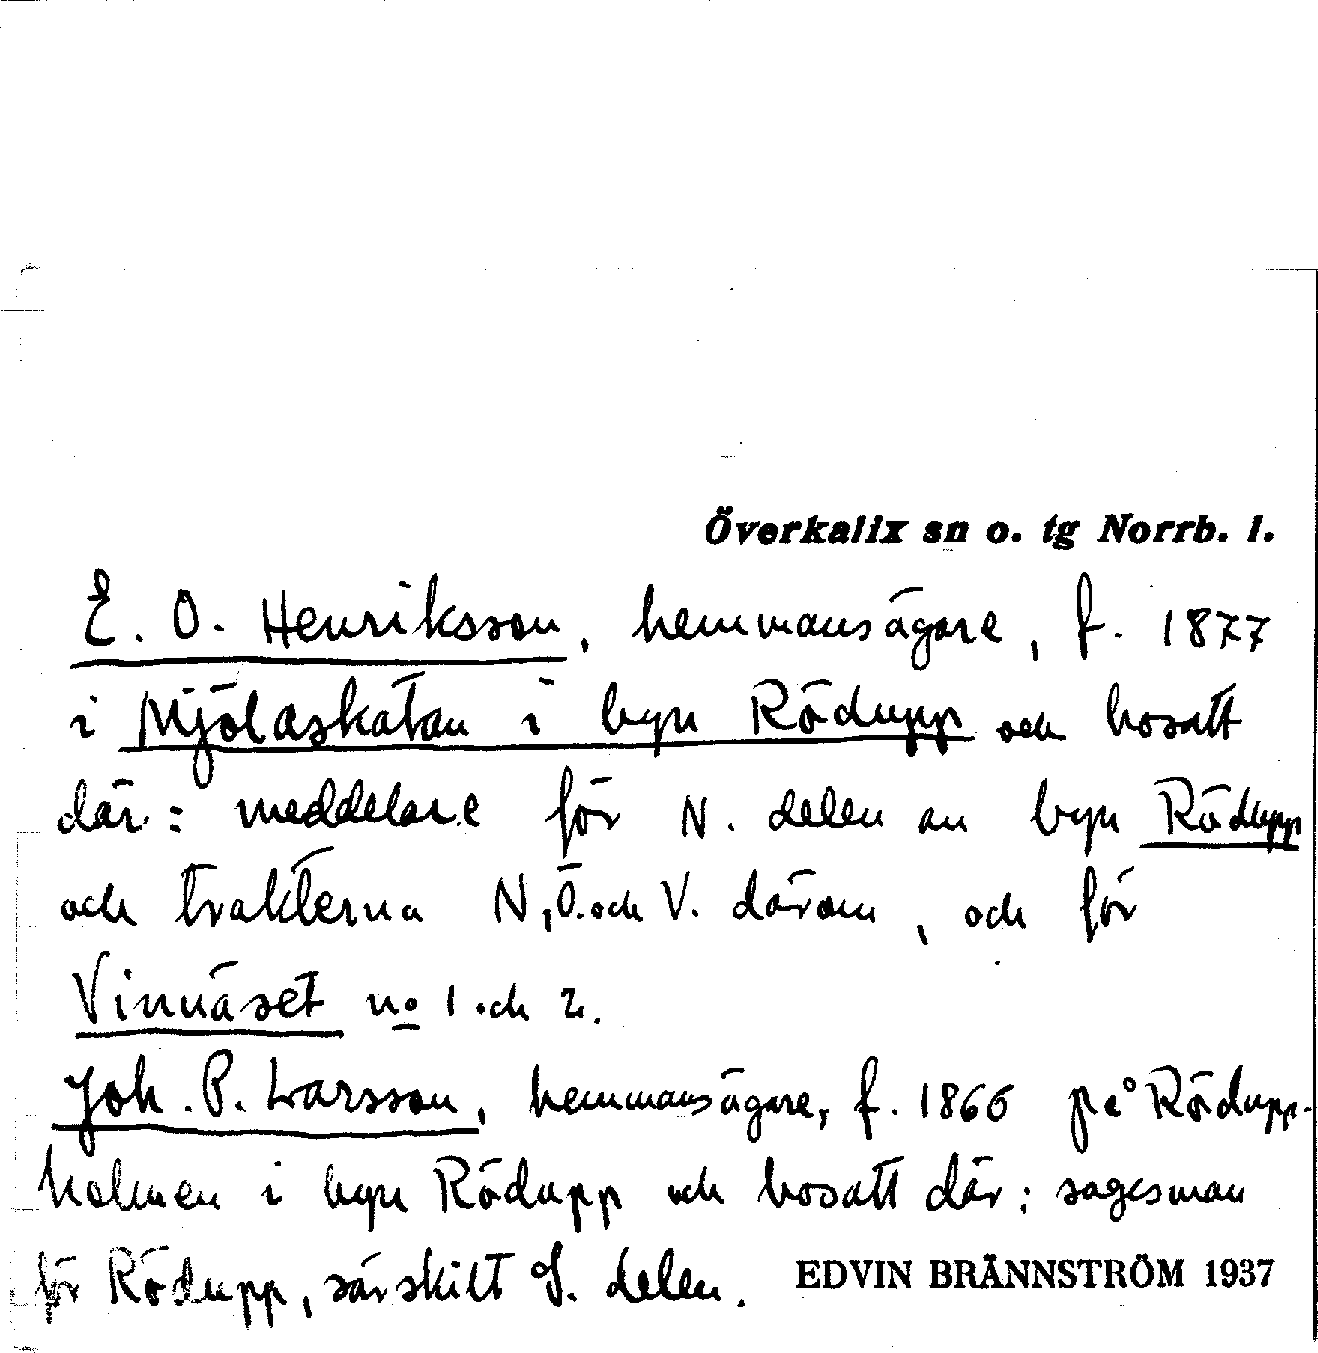 Överkalix sn o. tg Norrb. l.
E. O. Henriksson, hemmansägare, f. 1877
i Mjölaskatan i byn Rödupp och bosatt
där: meddelare för N. delen av byn Rödupp
och trakterna N, Ö. och V. därom, och för
Vinnäset no 1 och 2.
Joh. P. Larsson, hemmansägare, f. 1866 på Rödupp-
holmen i byn Rödupp och bosatt där: sagesman
för Rödupp, särskilt S. delen. EDVIN BRÄNNSTRÖM 1937